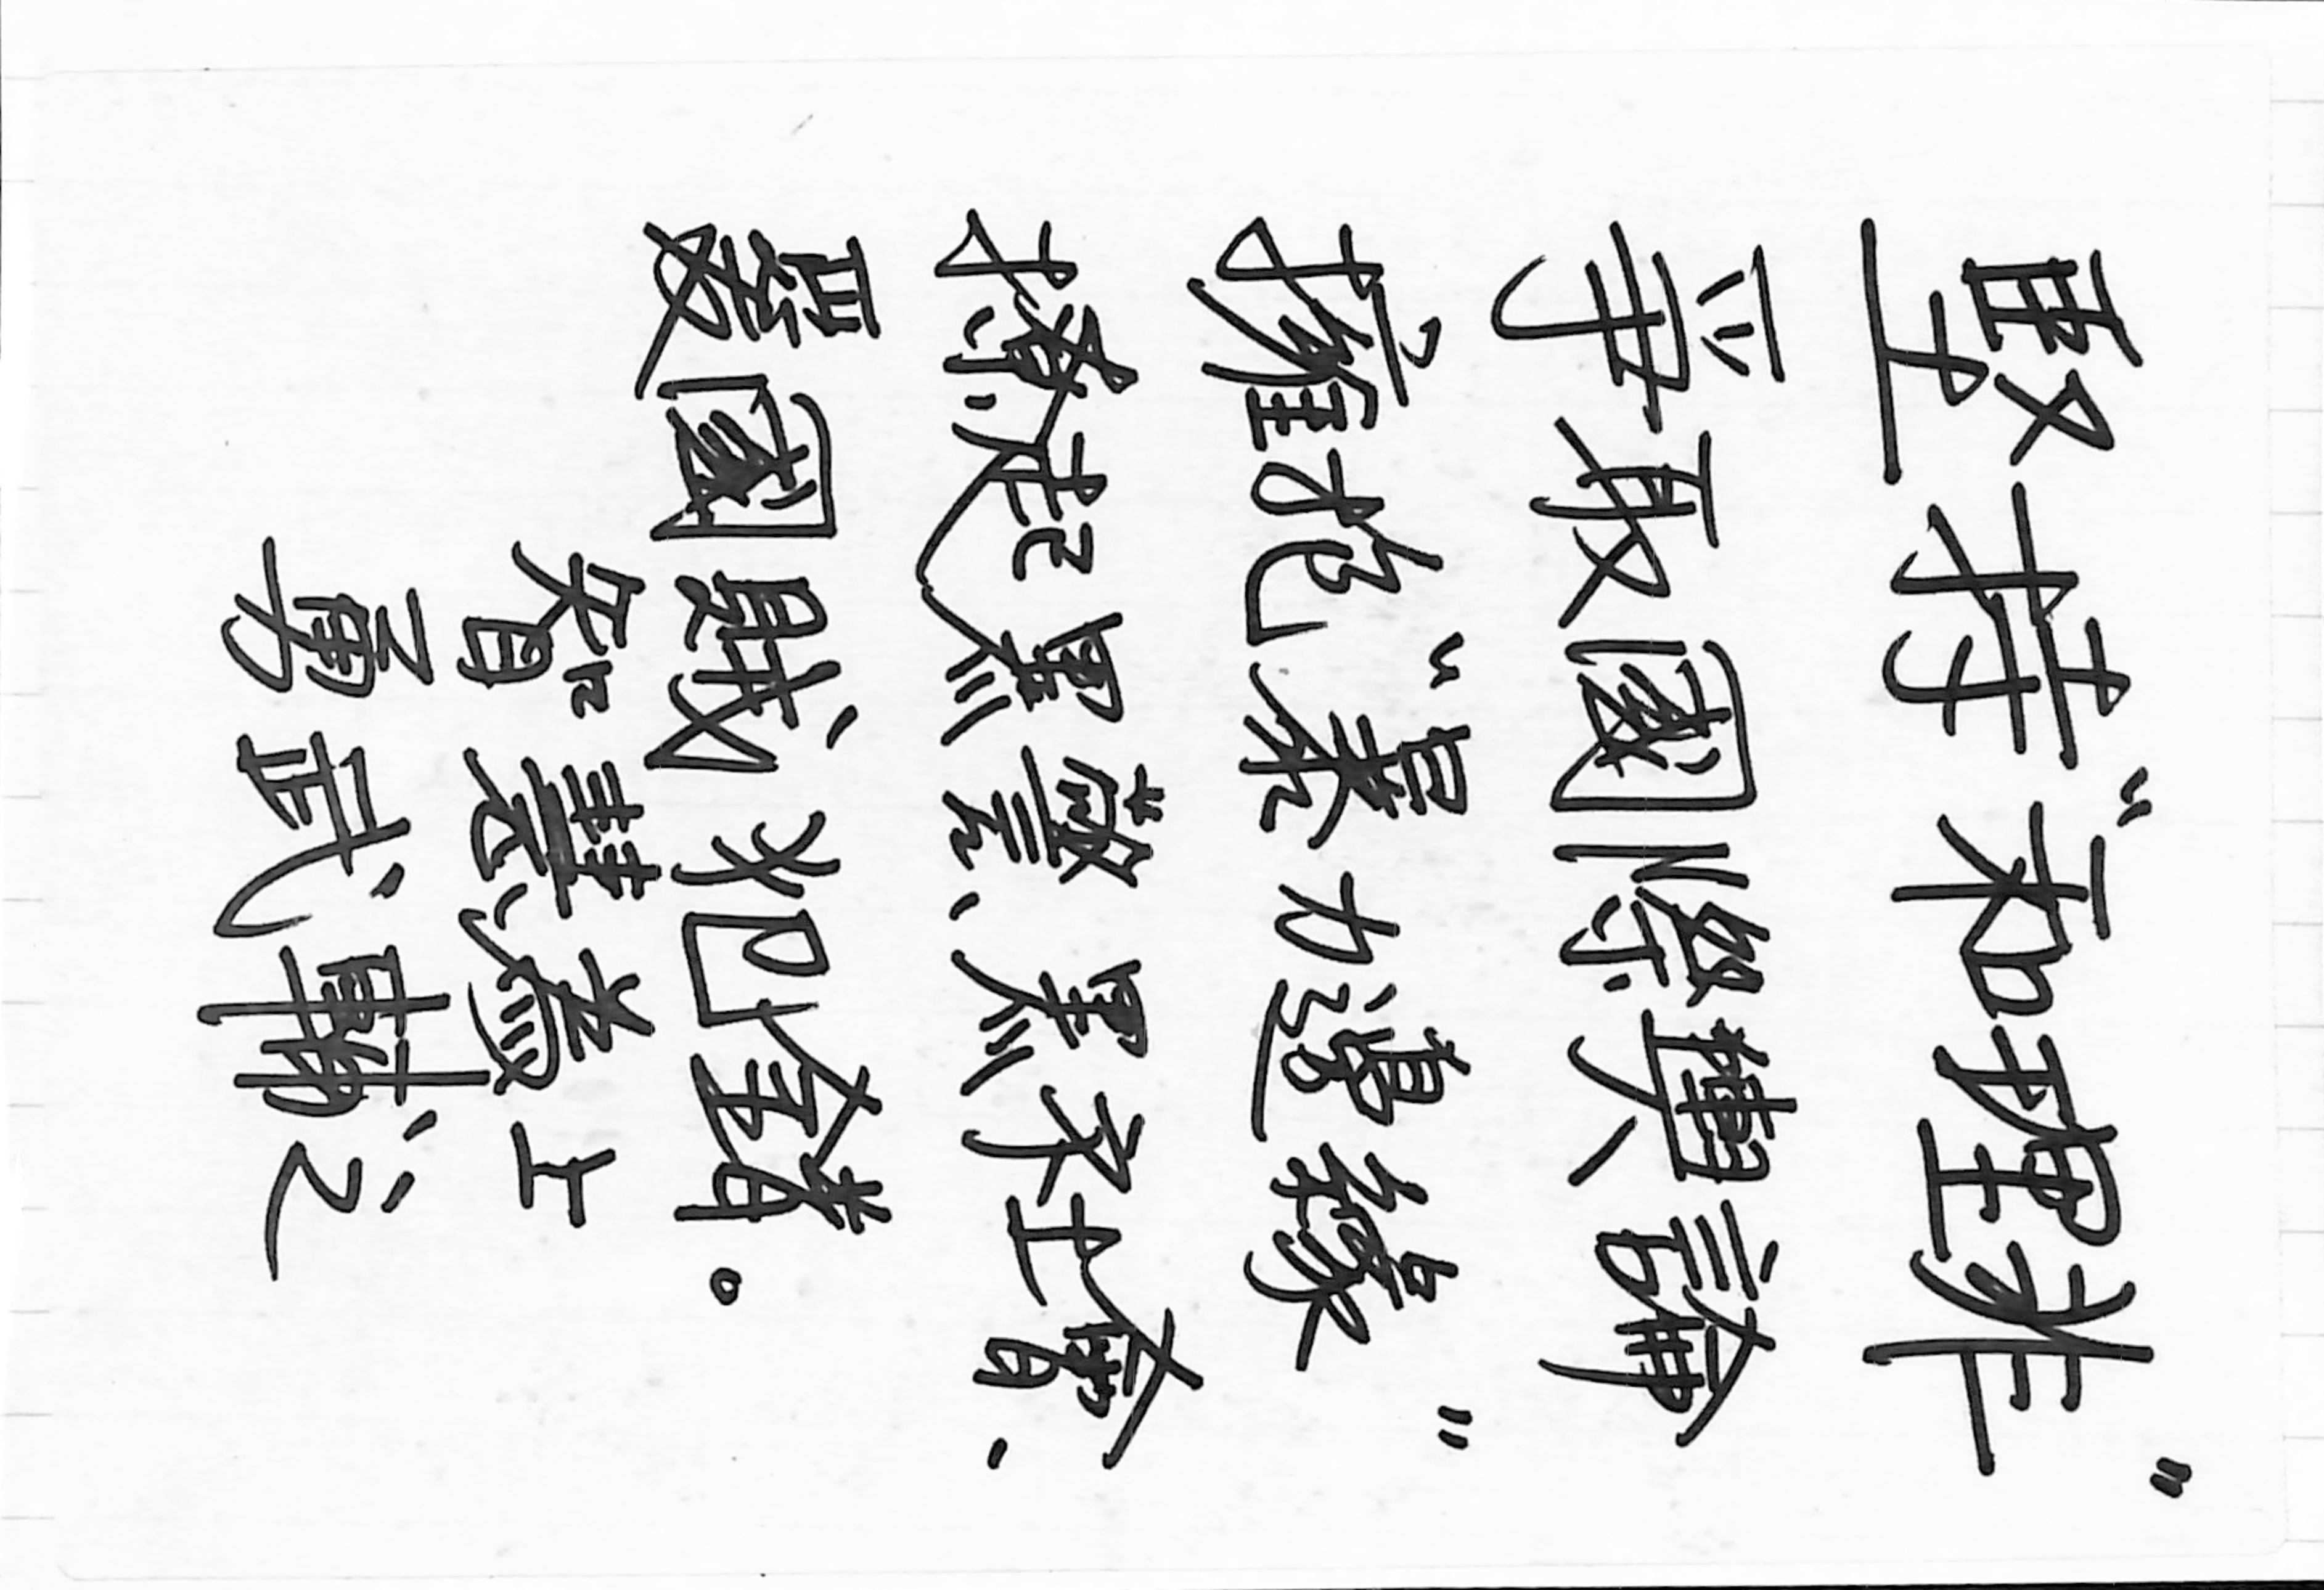 堅持“和理非”
爭取國際輿論
擁抱“暴力邊緣”
撩起黑警、黑社會、
愛國賊犯錯。
智慧為上
勇武輔之